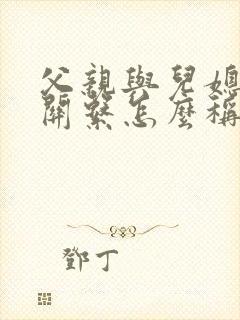 父親與兒媳
關繫怎麼稱
鄧丁